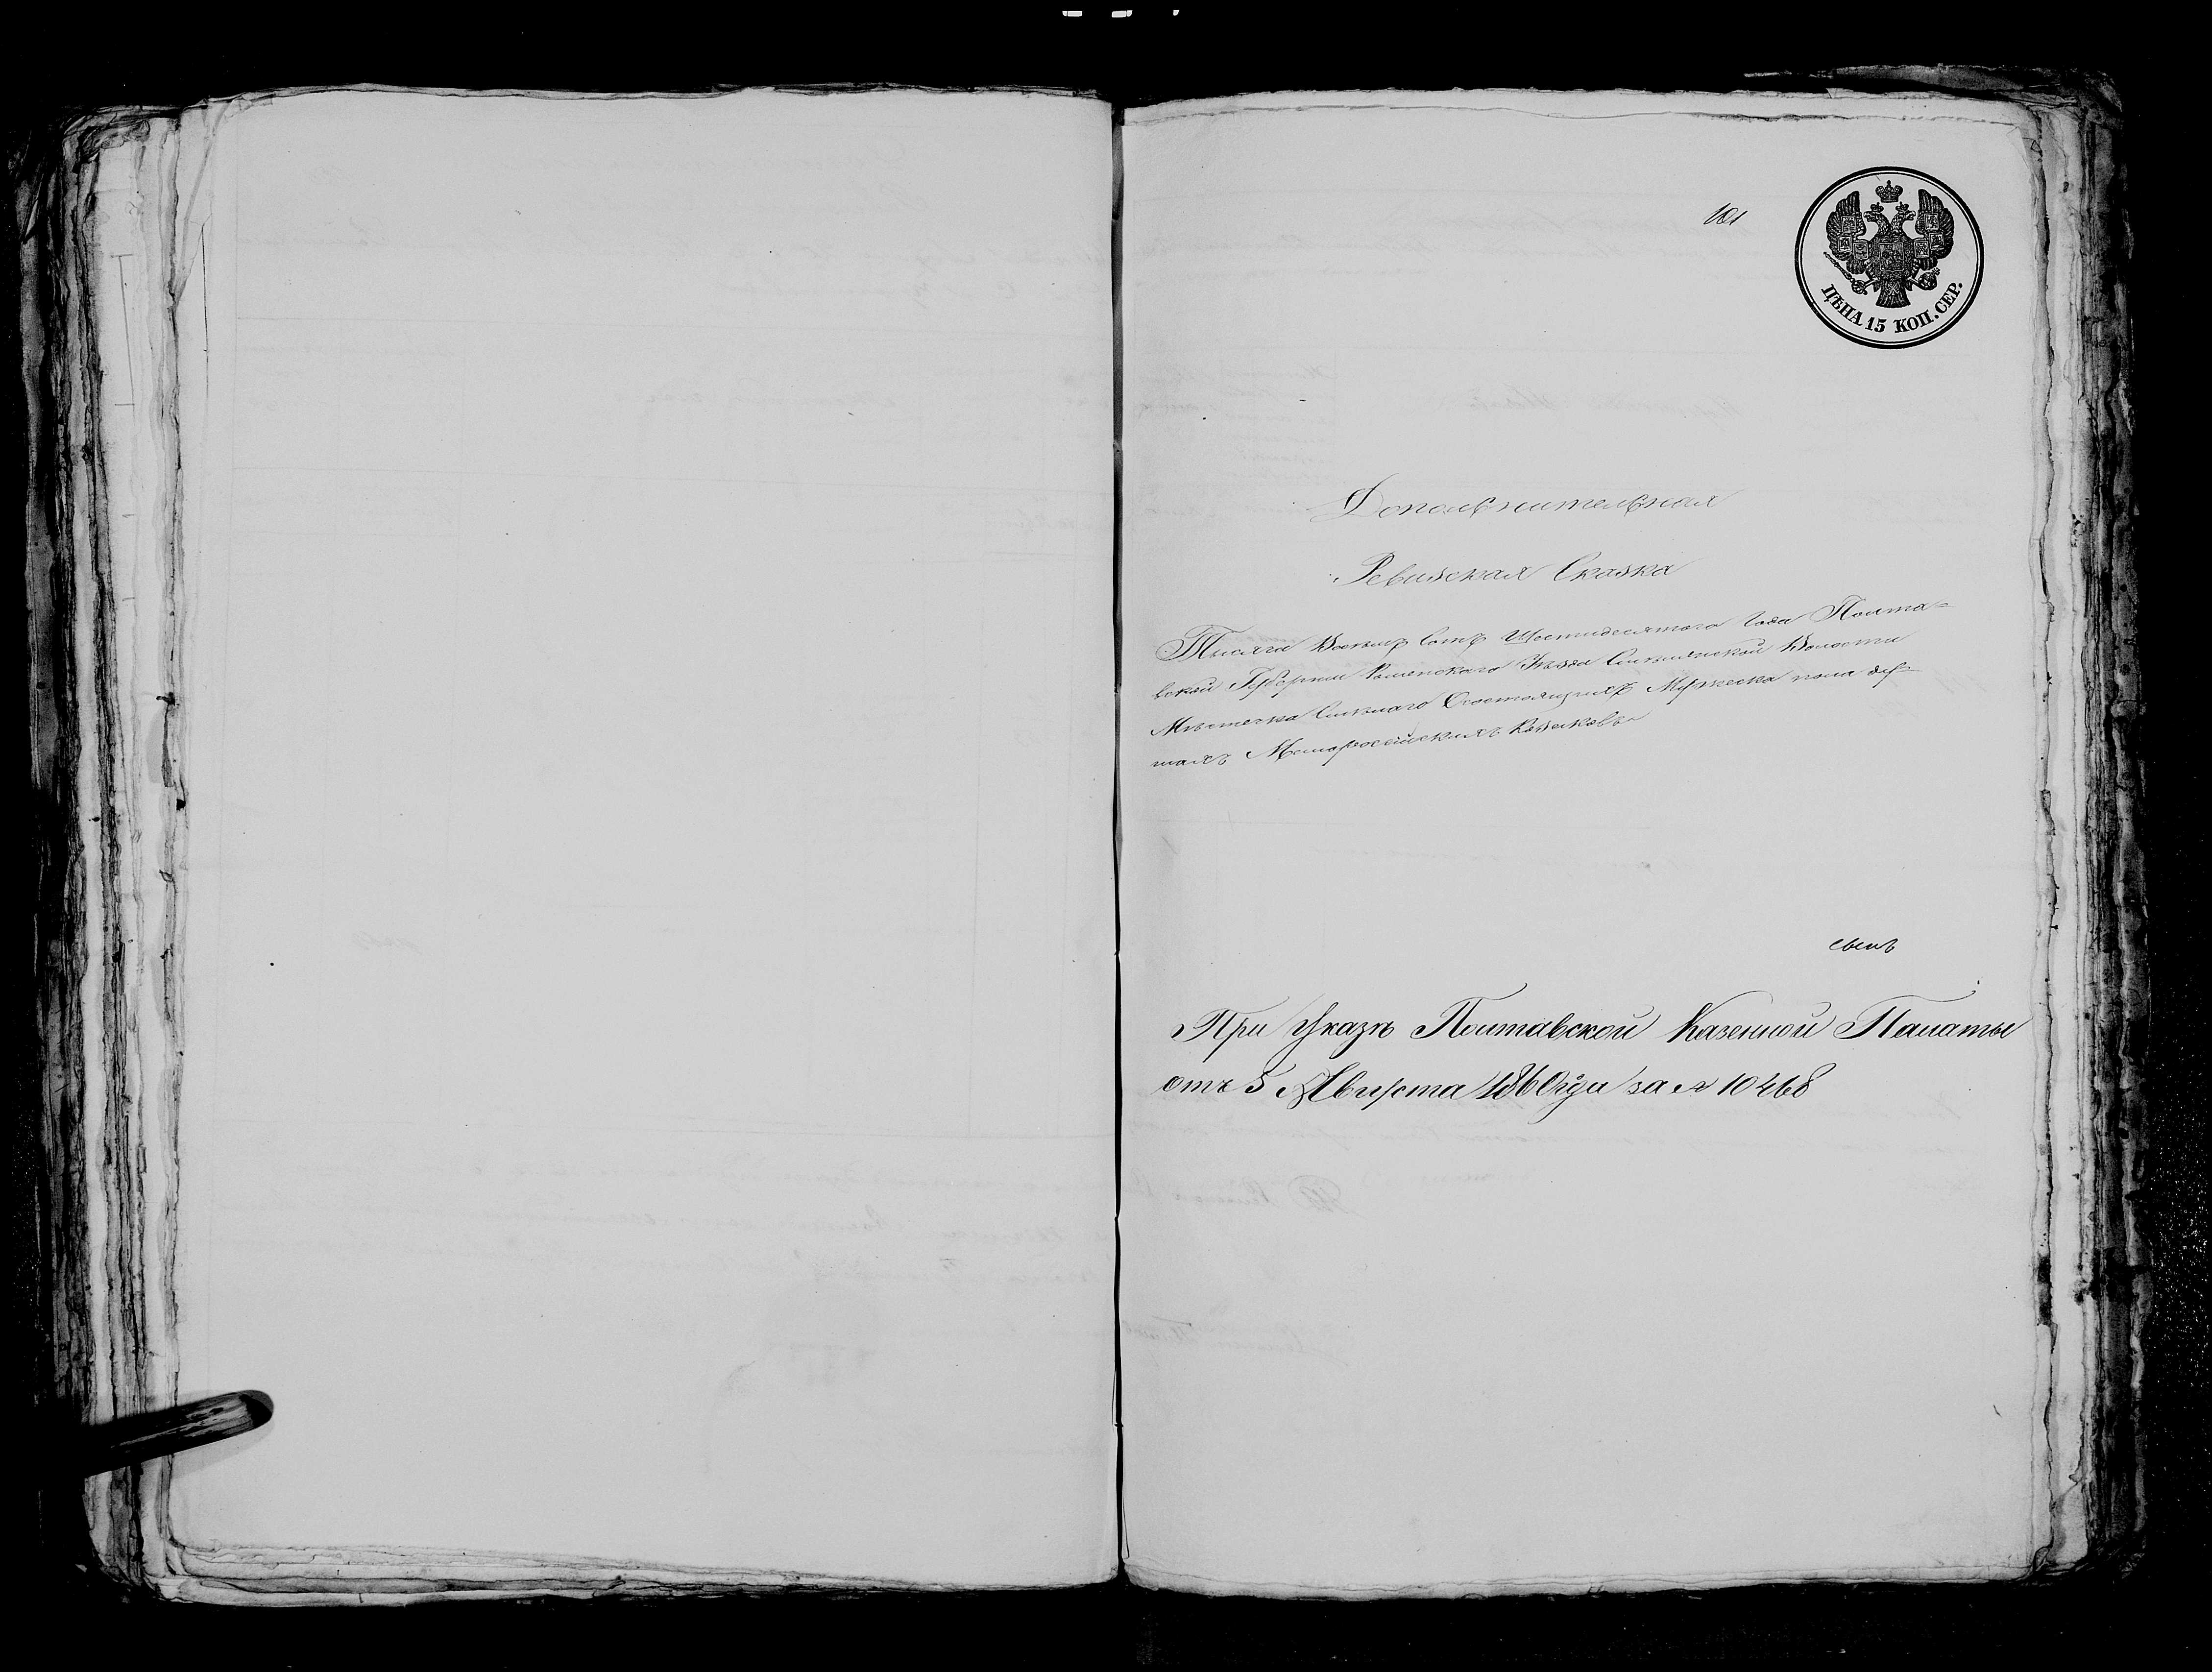 101
ЦѢНА 15 КОП. СЕР.
Дополнительная
Ревизская Сказка
Тысяча Восемь Сотъ Шестидесятого Года Полта=
вской Губерніи Роменскаго Уѣзда Смѣлянской Волости
Мѣстечка Смѣлаго Осостоящихъ Мужеска пола ду=
шахъ Малоросѣйскихъ Козаковъ
При Указѣ Полтавской Казенной Палаты
отъ 5 Августа 1860 года за № 10468